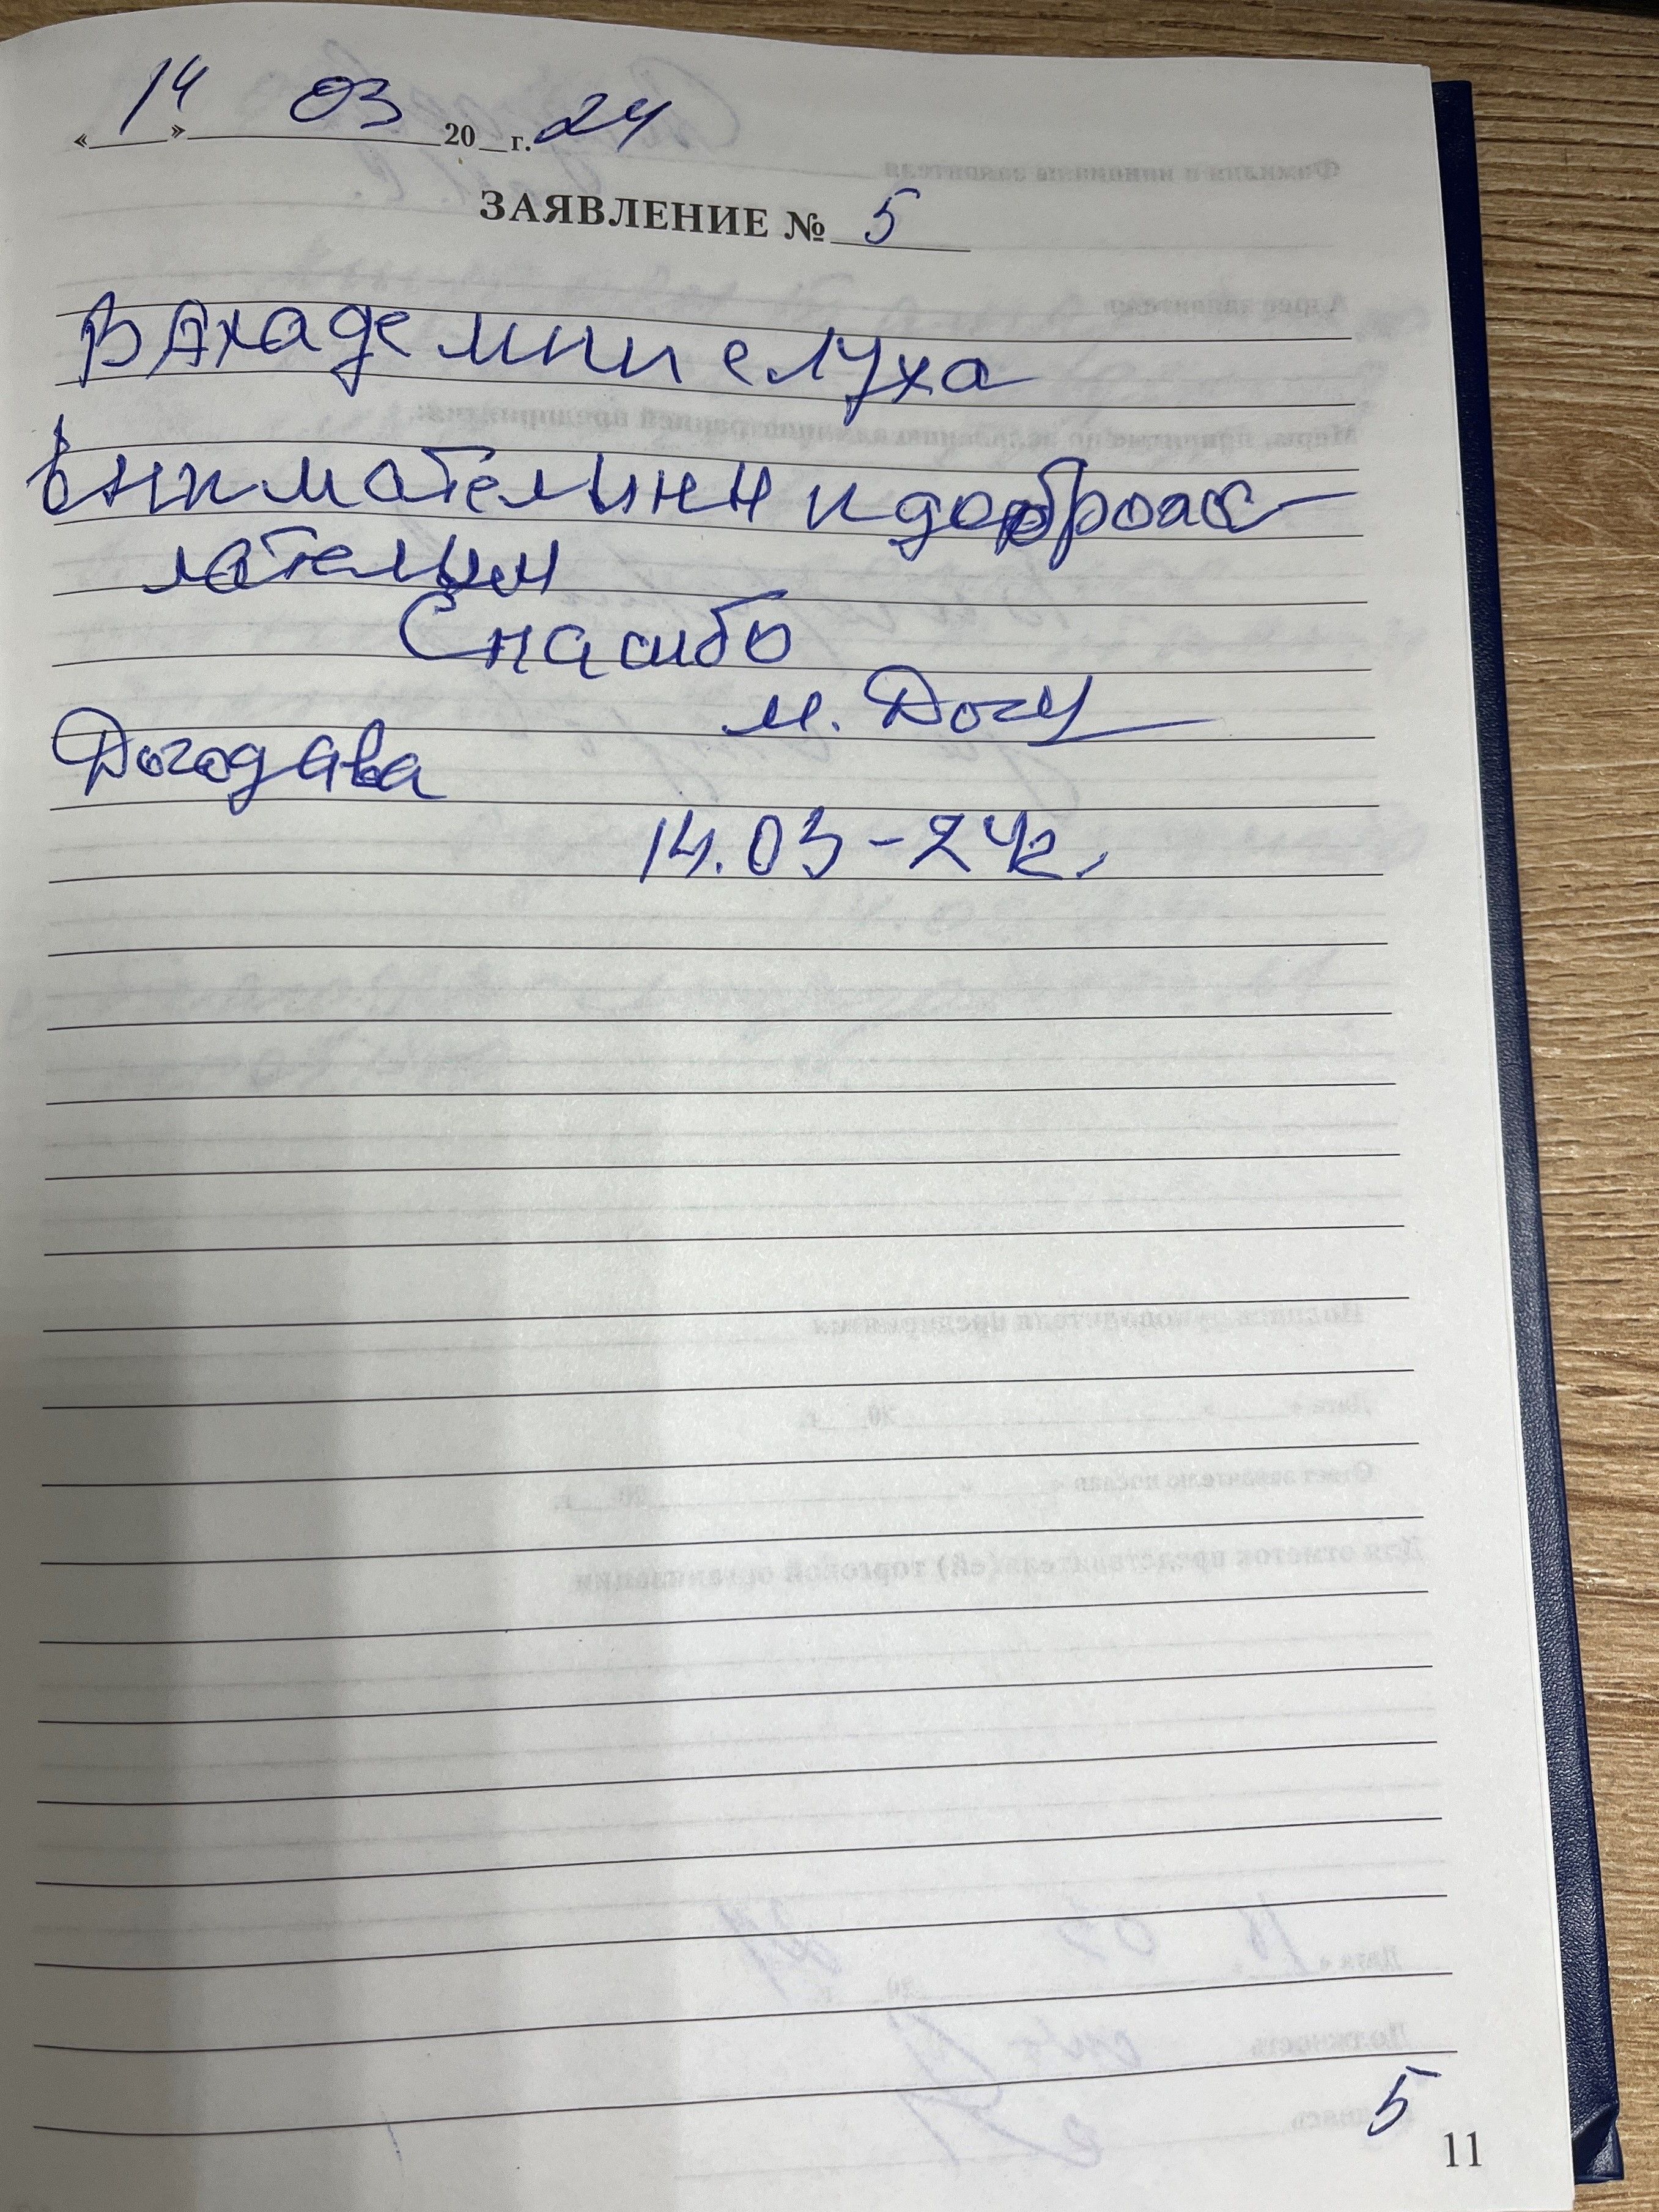 « 14 » 03 20 г. 24
ЗАЯВЛЕНИЕ № 5
В Академии слуха
внимательны и доброже-
лательны
Спасибо
14.03-24г.
5
11